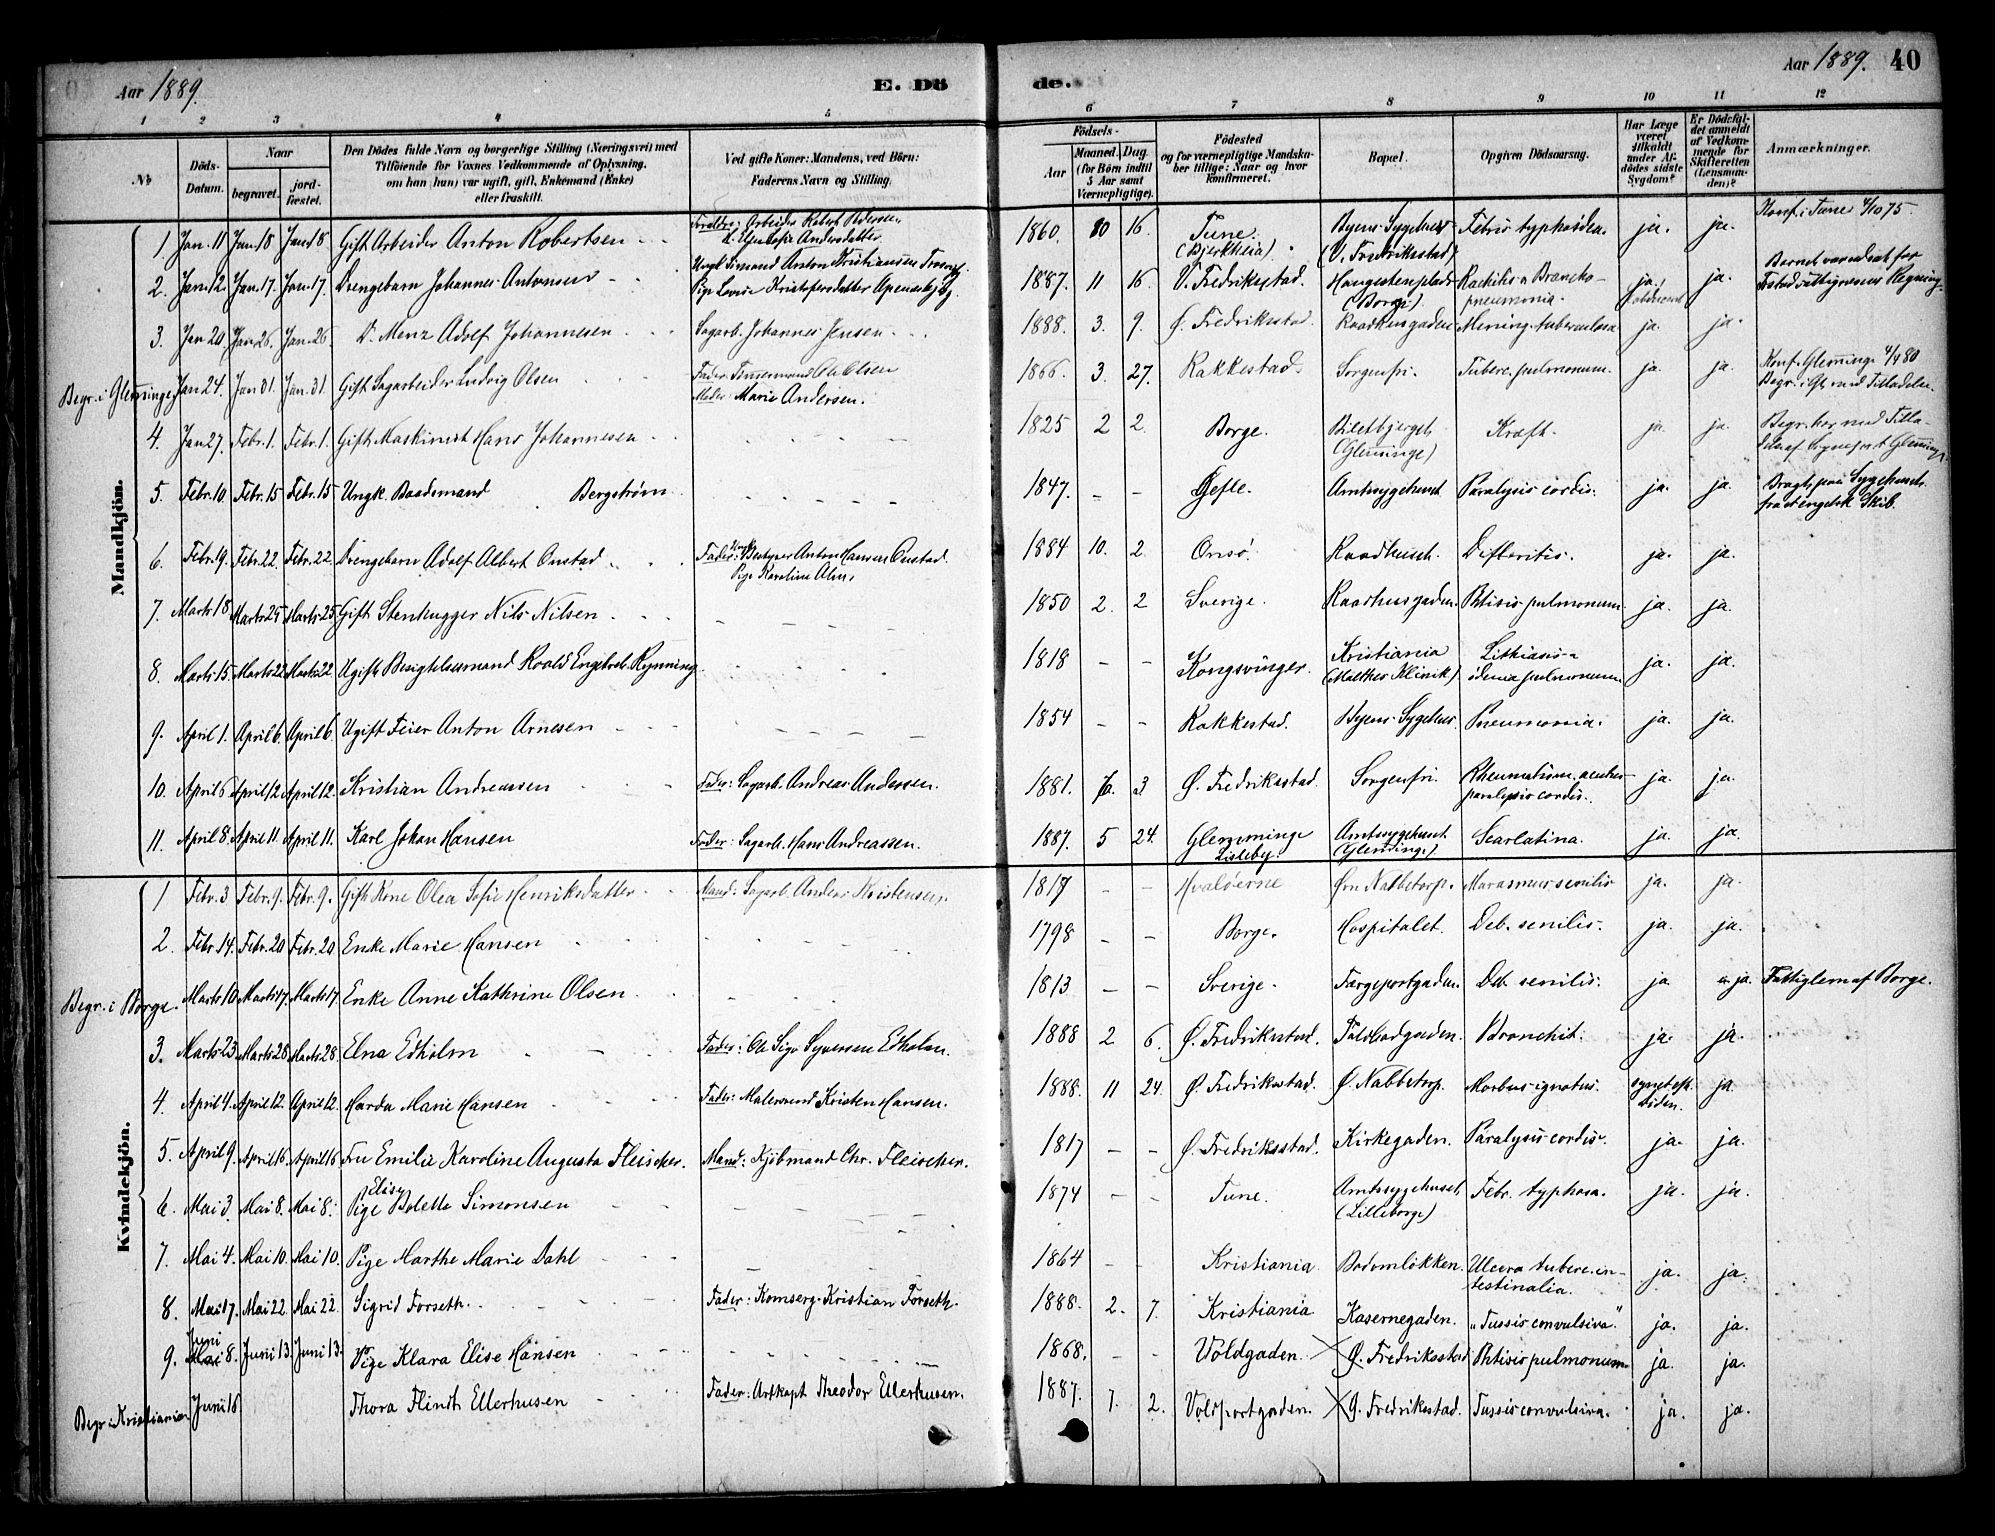 Aar 1889.
E. Dö
de.
Aar 1889. 40
1 2 3 4 5
6 7 8 9 10 11 12
No
Döds-
Datum.
Naar
begravet.
jord-
fæstet.
Den Dödes fulde Navn og borgerlige Stilling (Næringsvei) med
Tilföiende for Voxnes Vedkommende af Oplysning,
om han (hun) var ugift, gift, Enkemand (Enke)
eller fraskilt.
Ved gifte Koner: Mandens, ved Börn:
Faderens Navn og Stilling.
Födsels-
Aar
Maaned. Dag.
(for Börn indtil
5 Aar samt
Værnepligtige).
Födested
og for værnepligtige Mandska-
ber tillige: Naar og hvor
konfirmeret.
Bopæl.
Opgiven Dödsaarsag.
Har Læge
været
tilkaldt
under Af-
dödes sidste
Sygdom?
Er Dödsfal-
det anmeldt
af Vedkom-
mende for
Skifteretten
(Lensman-
den)?
Anmærkninger.
Mandkjön.
1. Jan. 11 Jan. 18 Jan. 18 Gift Arbeider Anton Robertsen Forældre: Arbeider Robert Pedersen 1860. 10 16. Tune Byens Sygehus Febris typhoidea. ja. ja. Konf. i Tune 4/10 75.
(Bjerkheia) (V. Fredriksstad)
2. Jan. 12. Jan. 17. Jan. 17. Drengebarn Johannes Antonsen Ungk. Simand Anton Kristiansen 1887. 11 16. V. Fredriksstad. (Borge) Rachitis Broncho- ja. ja.
Pige Lovise Kristofersdatter pneumonia.
3. Jan 20. Jan. 26. Jan. 26. D. Menz Adolf Johannesen Sagarb. Johannes Jensen 1888. 3. 9. Ø. Fredriksstad. Raadhusgaden Mening. tuberculosa ja. ja.
Begr. i Glemminge Jan 24. Jan 31. Jan. 31. Gift Sagarbeider Ludvig Olsen Fader: Tømmermand Ole Olsen 1866. 3. 27. Rakkestad. Sorgenfri. Tuberc. pulmonum. ja. ja. Konf. Glemminge 4/4 80
Moder: Marie Andersen. Begr. i Gl. med Tilladelse.
4. Jan 27. Febr. 1. Febr. 1. Gift Maskinist Hans Johannesen 1825 2 2. Borge. (Glemminge) Kræft. ja. ja. Begr. her med Tilla-
delse af Sognepr. t. Glemminge
5. Febr. 10 Febr. 15 Febr. 15 Ungk. Baadsmand Bergstrøm 1847. – – Gefle. Amtssygehuset Paralysis cordis. ja. ja. Bragt paa Sygehuset
fra et engelsk Skib.
6. Febr. 19. Febr. 22. Febr. 22. Drengebarn Adolf Albert Onstad Fader: Bestyrer Anton Hansen Onstad. 1884 10. 2. Onsø. Raadhuset. Difteritis. ja. ja.
Pige Karoline Alm,
7. Marts 18 Marts 25 Marts 25 Gift Stenhugger Nils Nilsen 1850 2. 2 Sverige. Raadhusgaden. Phtisis pulmonum ja. ja.
8. Marts 15. Marts 22 Marts 22 Ugift Besigtelsesmand Roald Engebret Rynning 1818 – – Kongsvinger. Kristiania Lithiasis ja. ja.
(Malthes Klinik) ødema pulmonum
9. April 1. April 6. April 6. Ugift Feier Anton Arnesen 1854 – – Rakkestad. Byens Sygehus Pneumonia. ja. ja.
10. April 6 April 12 April 12. Kristian Andreassen Fader: Sagarb. Andreas Andersen. 1881. 3 Ø. Fredriksstad. Sorgenfri. Rheumatism. ja. ja.
paralysis cordis.
11. April 8. April 11. April 11. Karl Johan Hansen Fader: Sagarb. Hans Andreassen. 1887. 5 24. Glemminge Amtssygehuset Scarlatina. ja. ja.
Lisleby. (Glemminge)
Kvindekjön.
1 Febr. 3 Febr. 9. Febr. 9. Gift Kone Olea Sofie Henriksdatter Mand: Sagarb. Anders Kristensen. 1817 – – Hvaløerne Ørn Nabbetorp. Marasmus senilis ja. ja.
2. Febr. 14. Febr. 20 Febr. 20. Enke Marie Hansen 1798 – – Borge. Hospitalet. Deb. senilis. ja. ja.
Begr. i Borge. Marts 10 Marts 17. Marts 17 Enke Anne Kathrine Olsen 1813 – – Sverige. Færgeportgaden. Deb. senilis. ja ja. Fattiglem af Borge.
3. Marts 23 Marts 28 Marts 28. Elna Edholm Fader: Ole Syversen Edholm. 1888 2 6. Ø. Fredriksstad. Toldbodgaden. Bronchit. ja. ja.
4. April 4. April 12. April 12. Harda Marie Hansen Fader: Malersvend Kristen Hansen. 1888. 11 24. Ø. Fredriksstad. Ø. Nabbetorp. Morbus ignotus. synet eft. ja.
Døden.
5. April 9. April 16. April 16 Fru Emilie Karoline Augusta Fleischer. Mand: Kjøbmand Chr. Fleischer. 1817 – – Ø. Fredriksstad. Kirkegaden. Paralysis cordis. ja. ja.
Elisa
6. Mai 3. Mai 8. Mai 8. Pige Bolette Simonsen 1874 – – Tune. Amtssygehuset, Febr. typhosa. ja. ja.
(Lilleborge)
7. Mai 4. Mai 10. Mai 10. Pige Marthe Marie Dahl 1864 – – Kristiania Bodomløkken. Ulcera tuberc. in- ja. ja.
testinalia.
8. Mai 17. Mai 22. Mai 22. Sigrid Forseth. Fader: Komserg. Kristian Forseth. 1888. 2. 7. Kristiania Kasernegaden. "Tussis convulsiva." ja. ja.
Juni
9. Mai 8. Juni 13. Juni 13. Pige Klara Elise Hansen 1868. – – Voldgaden. × Ø. Fredriksstad Phtisis pulmonum ja. ja.
Begr. i Kristiania Juni 18 Thora Flindt Ellerhusen Fader: Artkapt Theodor Ellerhusen. 1887. 7. 2. Voldportgaden. × Ø. Fredriksstad. Tussis convulsiva. ja. ja.